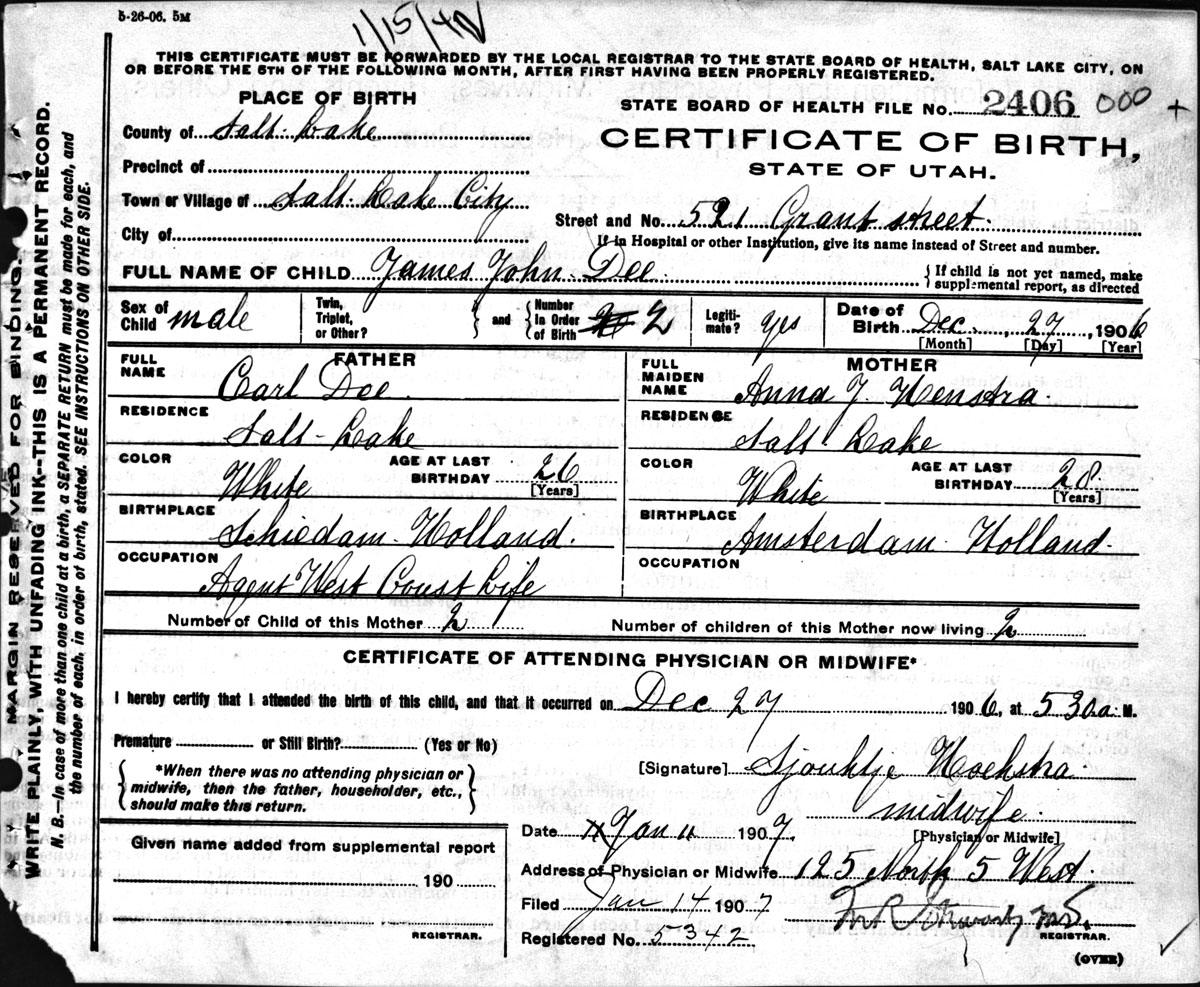 5-26-06. 5M
1/15/42
THIS CERTIFICATE MUST BE FORWARDED BY THE LOCAL REGISTRAR TO THE STATE BOARD OF HEALTH, SALT LAKE CITY, ON
OR BEFORE THE 5TH OF THE FOLLOWING MONTH, AFTER FIRST HAVING BEEN PROPERLY REGISTERED.
PLACE OF BIRTH
STATE BOARD OF HEALTH FILE No. 2406 000 +
County of Salt Lake
CERTIFICATE OF BIRTH,
STATE OF UTAH.
Precinct of
Town or Village of Salt Lake City
Street and No. 521 Grant street.
City of
If in Hospital or other Institution, give its name instead of Street and number.
FULL NAME OF CHILD James John Dee
{ If child is not yet named, make
supplemental report, as directed
Sex of Child male
Twin, Triplet, or Other? } and { Number In Order of Birth 2
Legiti-mate? yes
Date of Birth Dec. 27, 1906
[Month] [Day] [Year]
FATHER
FULL NAME Carl Dee.
RESIDENCE
Salt Lake
COLOR White
AGE AT LAST BIRTHDAY 26
[Years]
BIRTHPLACE
Schiedam Holland.
OCCUPATION
Agent West Coust Life
MOTHER
FULL MAIDEN NAME Anna J. Henstra.
RESIDENCE
Salt Lake
COLOR White
AGE AT LAST BIRTHDAY 28.
[Years]
BIRTHPLACE
Amsterdam Holland.
OCCUPATION
Number of Child of this Mother 2
Number of children of this Mother now living 2
CERTIFICATE OF ATTENDING PHYSICIAN OR MIDWIFE*
I hereby certify that I attended the birth of this child, and that it occurred on Dec 27 1906, at 530 a. M.
Premature or Still Birth? (Yes or No)
{ *When there was no attending physician or
midwife, then the father, householder, etc.,
should make this return. }
[Signature] Sjouktje Hoekstra.
midwife.
[Physician or Midwife]
Date Jan 11 1907.
Given name added from supplemental report
190
REGISTRAR.
Address of Physician or Midwife 125 North 5 West.
Filed Jan 14 1907
REGISTRAR.
Registered No. 5342
(OVER)
MARGIN RESERVED FOR BINDING.
WRITE PLAINLY, WITH UNFADING INK--THIS IS A PERMANENT RECORD.
N. B.—In case of more than one child at a birth, a SEPARATE RETURN must be made for each, and
the number of each, in order of birth, stated. SEE INSTRUCTIONS ON OTHER SIDE.